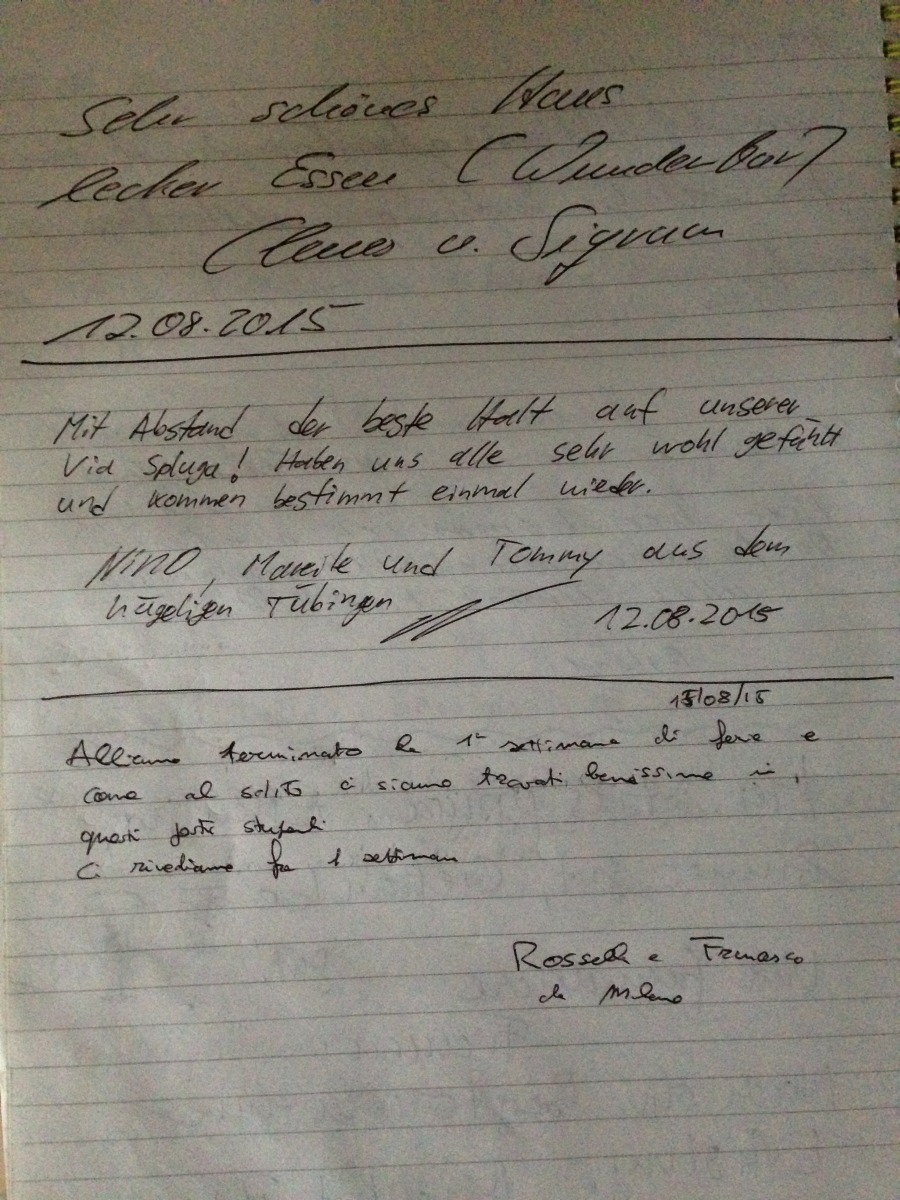 Sehr schönes Haus
lecker Essen (Wunderbar)
Claus u. Sigrun
12.08.2015
Mit Abstand der beste Halt auf unserer
Via Spluga! Haben uns alle sehr wohl gefühlt
und kommen bestimmt einmal wieder.
Nino, Mareike und Tommy aus dem
hügeligen Tübingen
12.08.2015
15/08/15
Abbiamo terminato la 1ª settimana di ferie e
come al solito ci siamo trovati benissimo in
questi posti stupendi
Ci rivediamo fra 1 settimana
Rossella e Francesco
da Milano